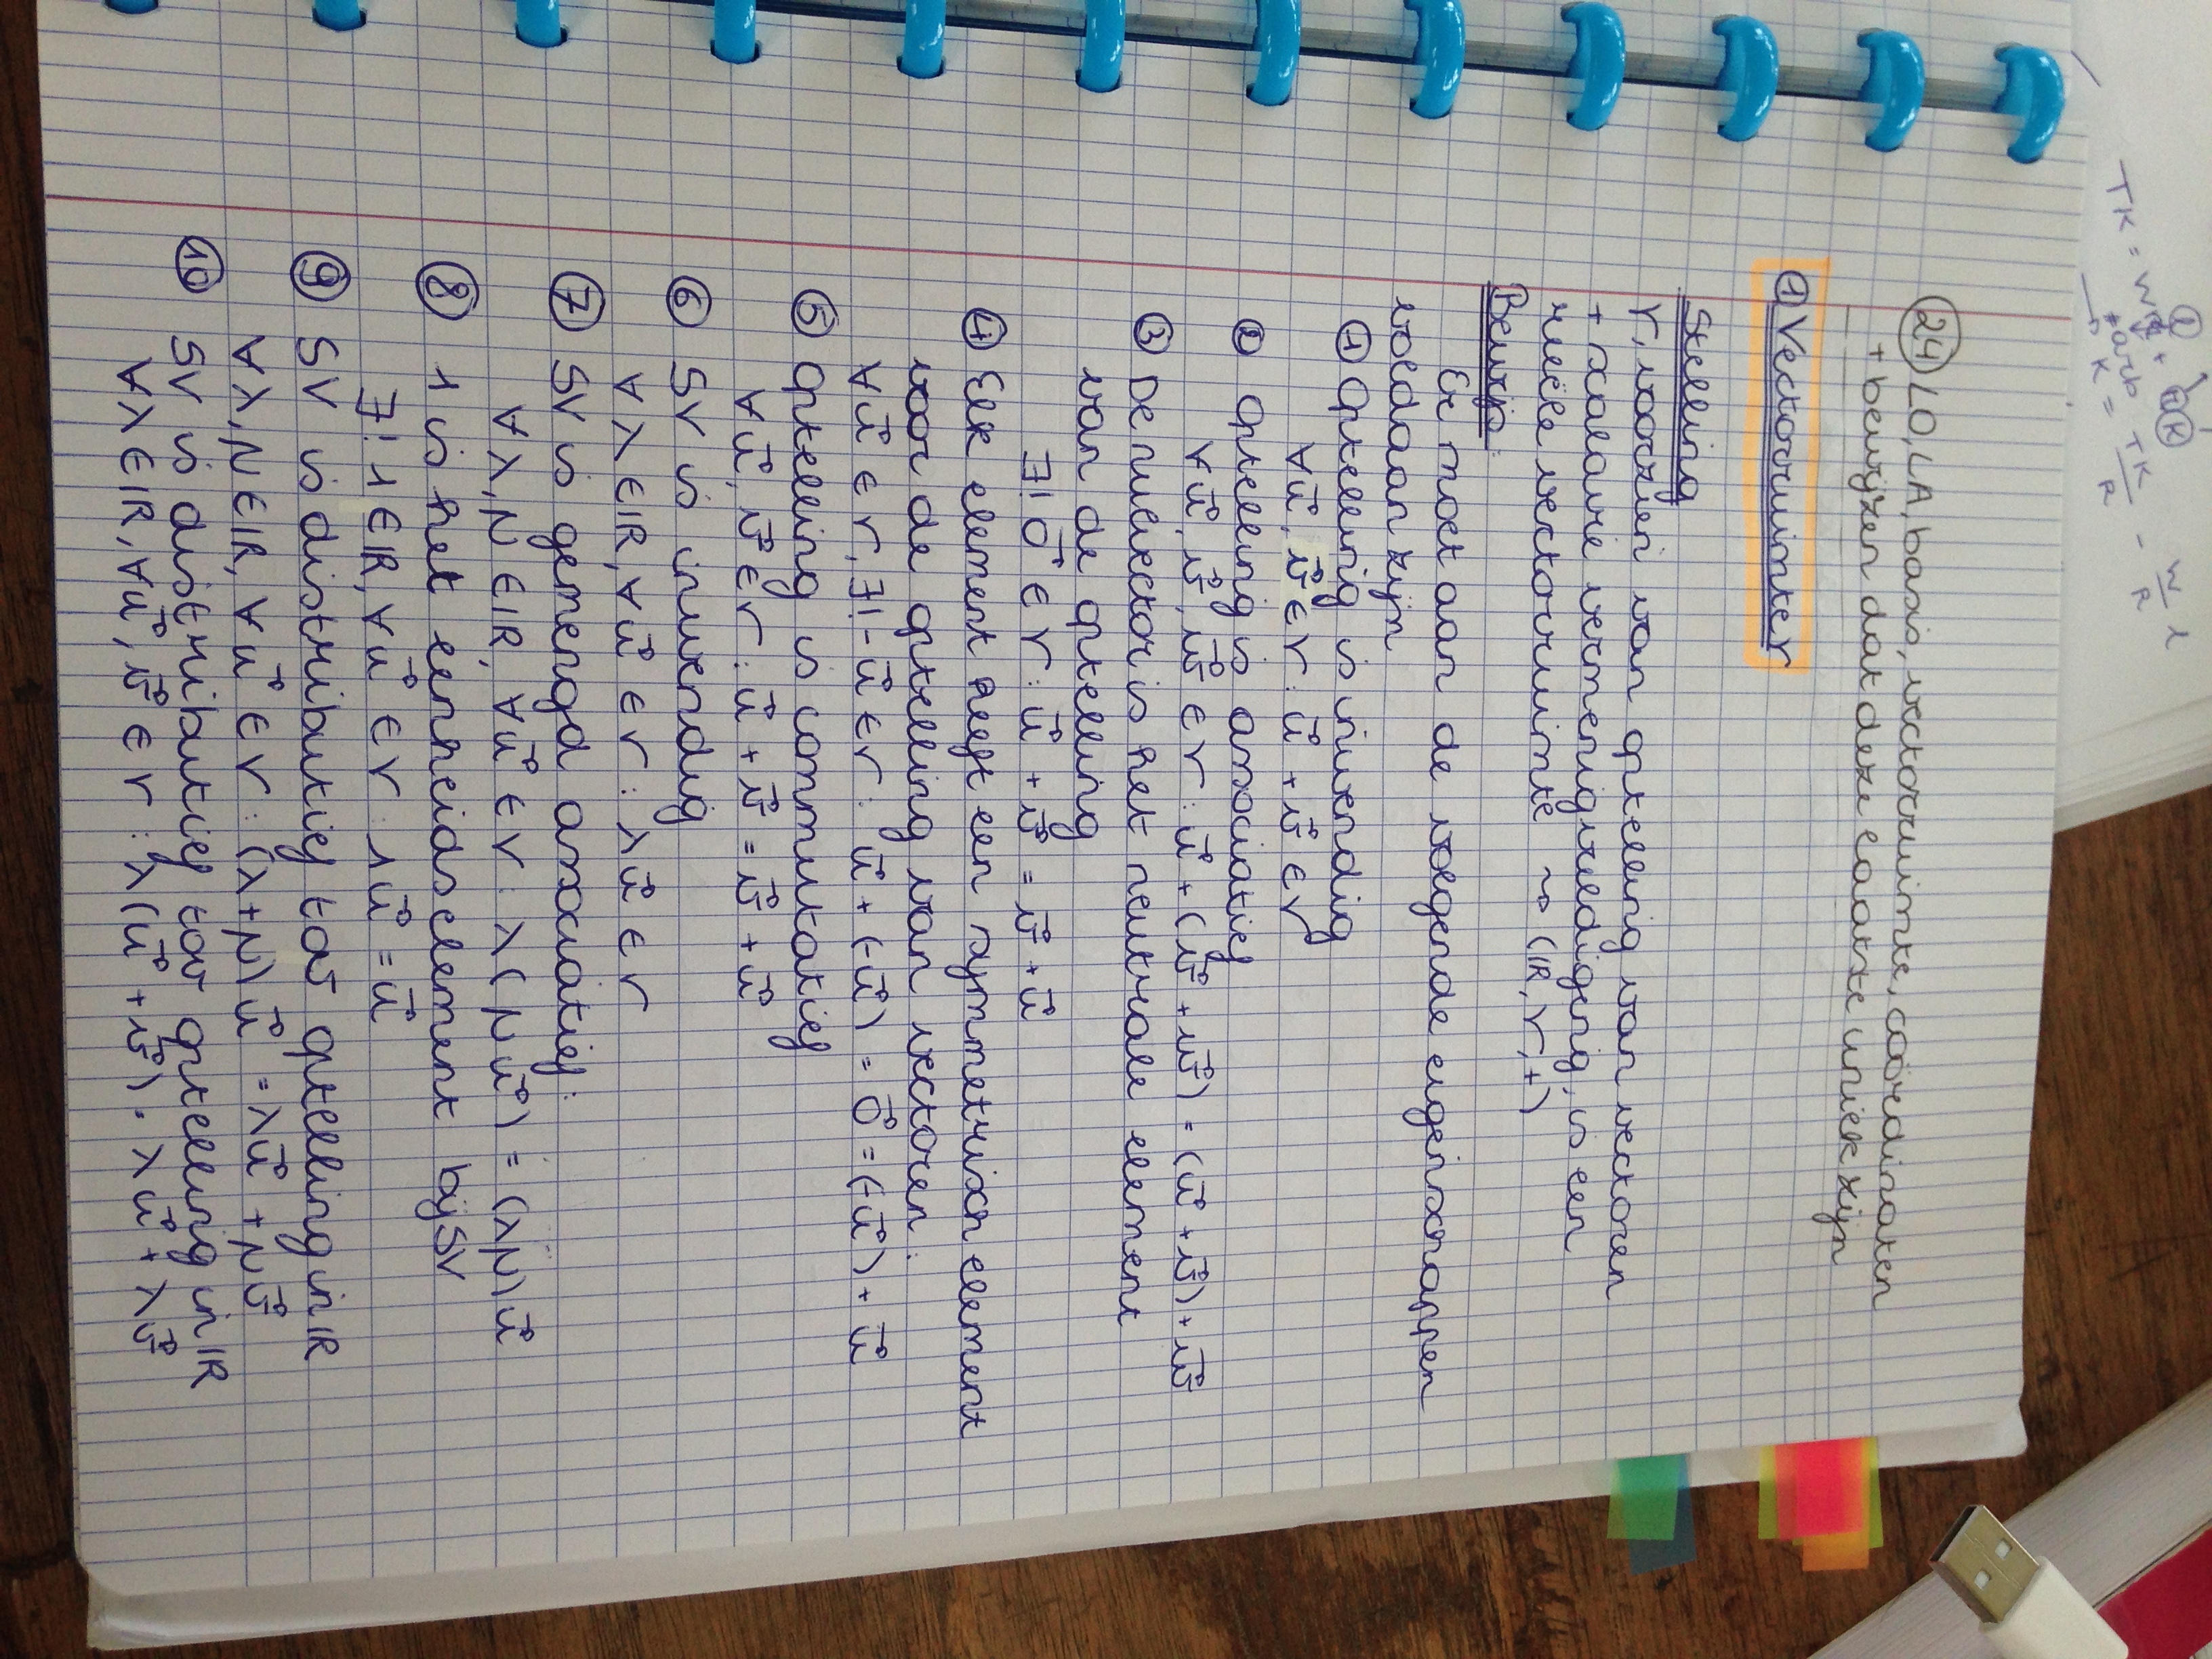 24 LO, LA, basis, vectorruimte, coördinaten
+ bewijzen dat deze laatse uniek zijn
1 Vectorruimter
Stelling
V, voorzien van optelling van vectoren
+ scalaire vermenigvuldiging, is een
reeële vectorruimte ⇝ (ℝ, V, +)
Bewijs:
Er moet aan de volgende eigenschappen
voldaan zijn
1 Optelling is inwendig
∀u⃗, v⃗ ∈ V : u⃗ + v⃗ ∈ V
2 Optelling is associatief
∀u⃗, v⃗, w⃗ ∈ V : u⃗ + (v⃗ + w⃗) = (u⃗ + v⃗) + w⃗
3 De nulvector is het neutrale element
van de optelling
∃! o⃗ ∈ V : u⃗ + v⃗ = v⃗ + u⃗
4 Elk element heeft een symmetrisch element
voor de optelling van vectoren:
∀u⃗ ∈ V, ∃! -u⃗ ∈ V : u⃗ + (-u⃗) = o⃗ = (-u⃗) + u⃗
5 Optelling is commutatief
∀u⃗, v⃗ ∈ V : u⃗ + v⃗ = v⃗ + u⃗
6 SV is inwendig
∀λ ∈ ℝ, ∀u⃗ ∈ V : λu⃗ ∈ V
7 SV is gemengd associatief:
∀λ, μ ∈ ℝ, ∀u⃗ ∈ V : λ(μu⃗) = (λμ)u⃗
8 1 is het eenheidselement bij SV
∃! 1 ∈ ℝ, ∀u⃗ ∈ V : 1u⃗ = u⃗
9 SV is distributief tov optelling in ℝ
∀λ, μ ∈ ℝ, ∀u⃗ ∈ V : (λ+μ)u⃗ = λu⃗ + μv⃗
10 SV is distributief tov optelling in ℝ
∀λ ∈ ℝ, ∀u⃗, v⃗ ∈ V : λ(u⃗ + v⃗) = λu⃗ + λv⃗